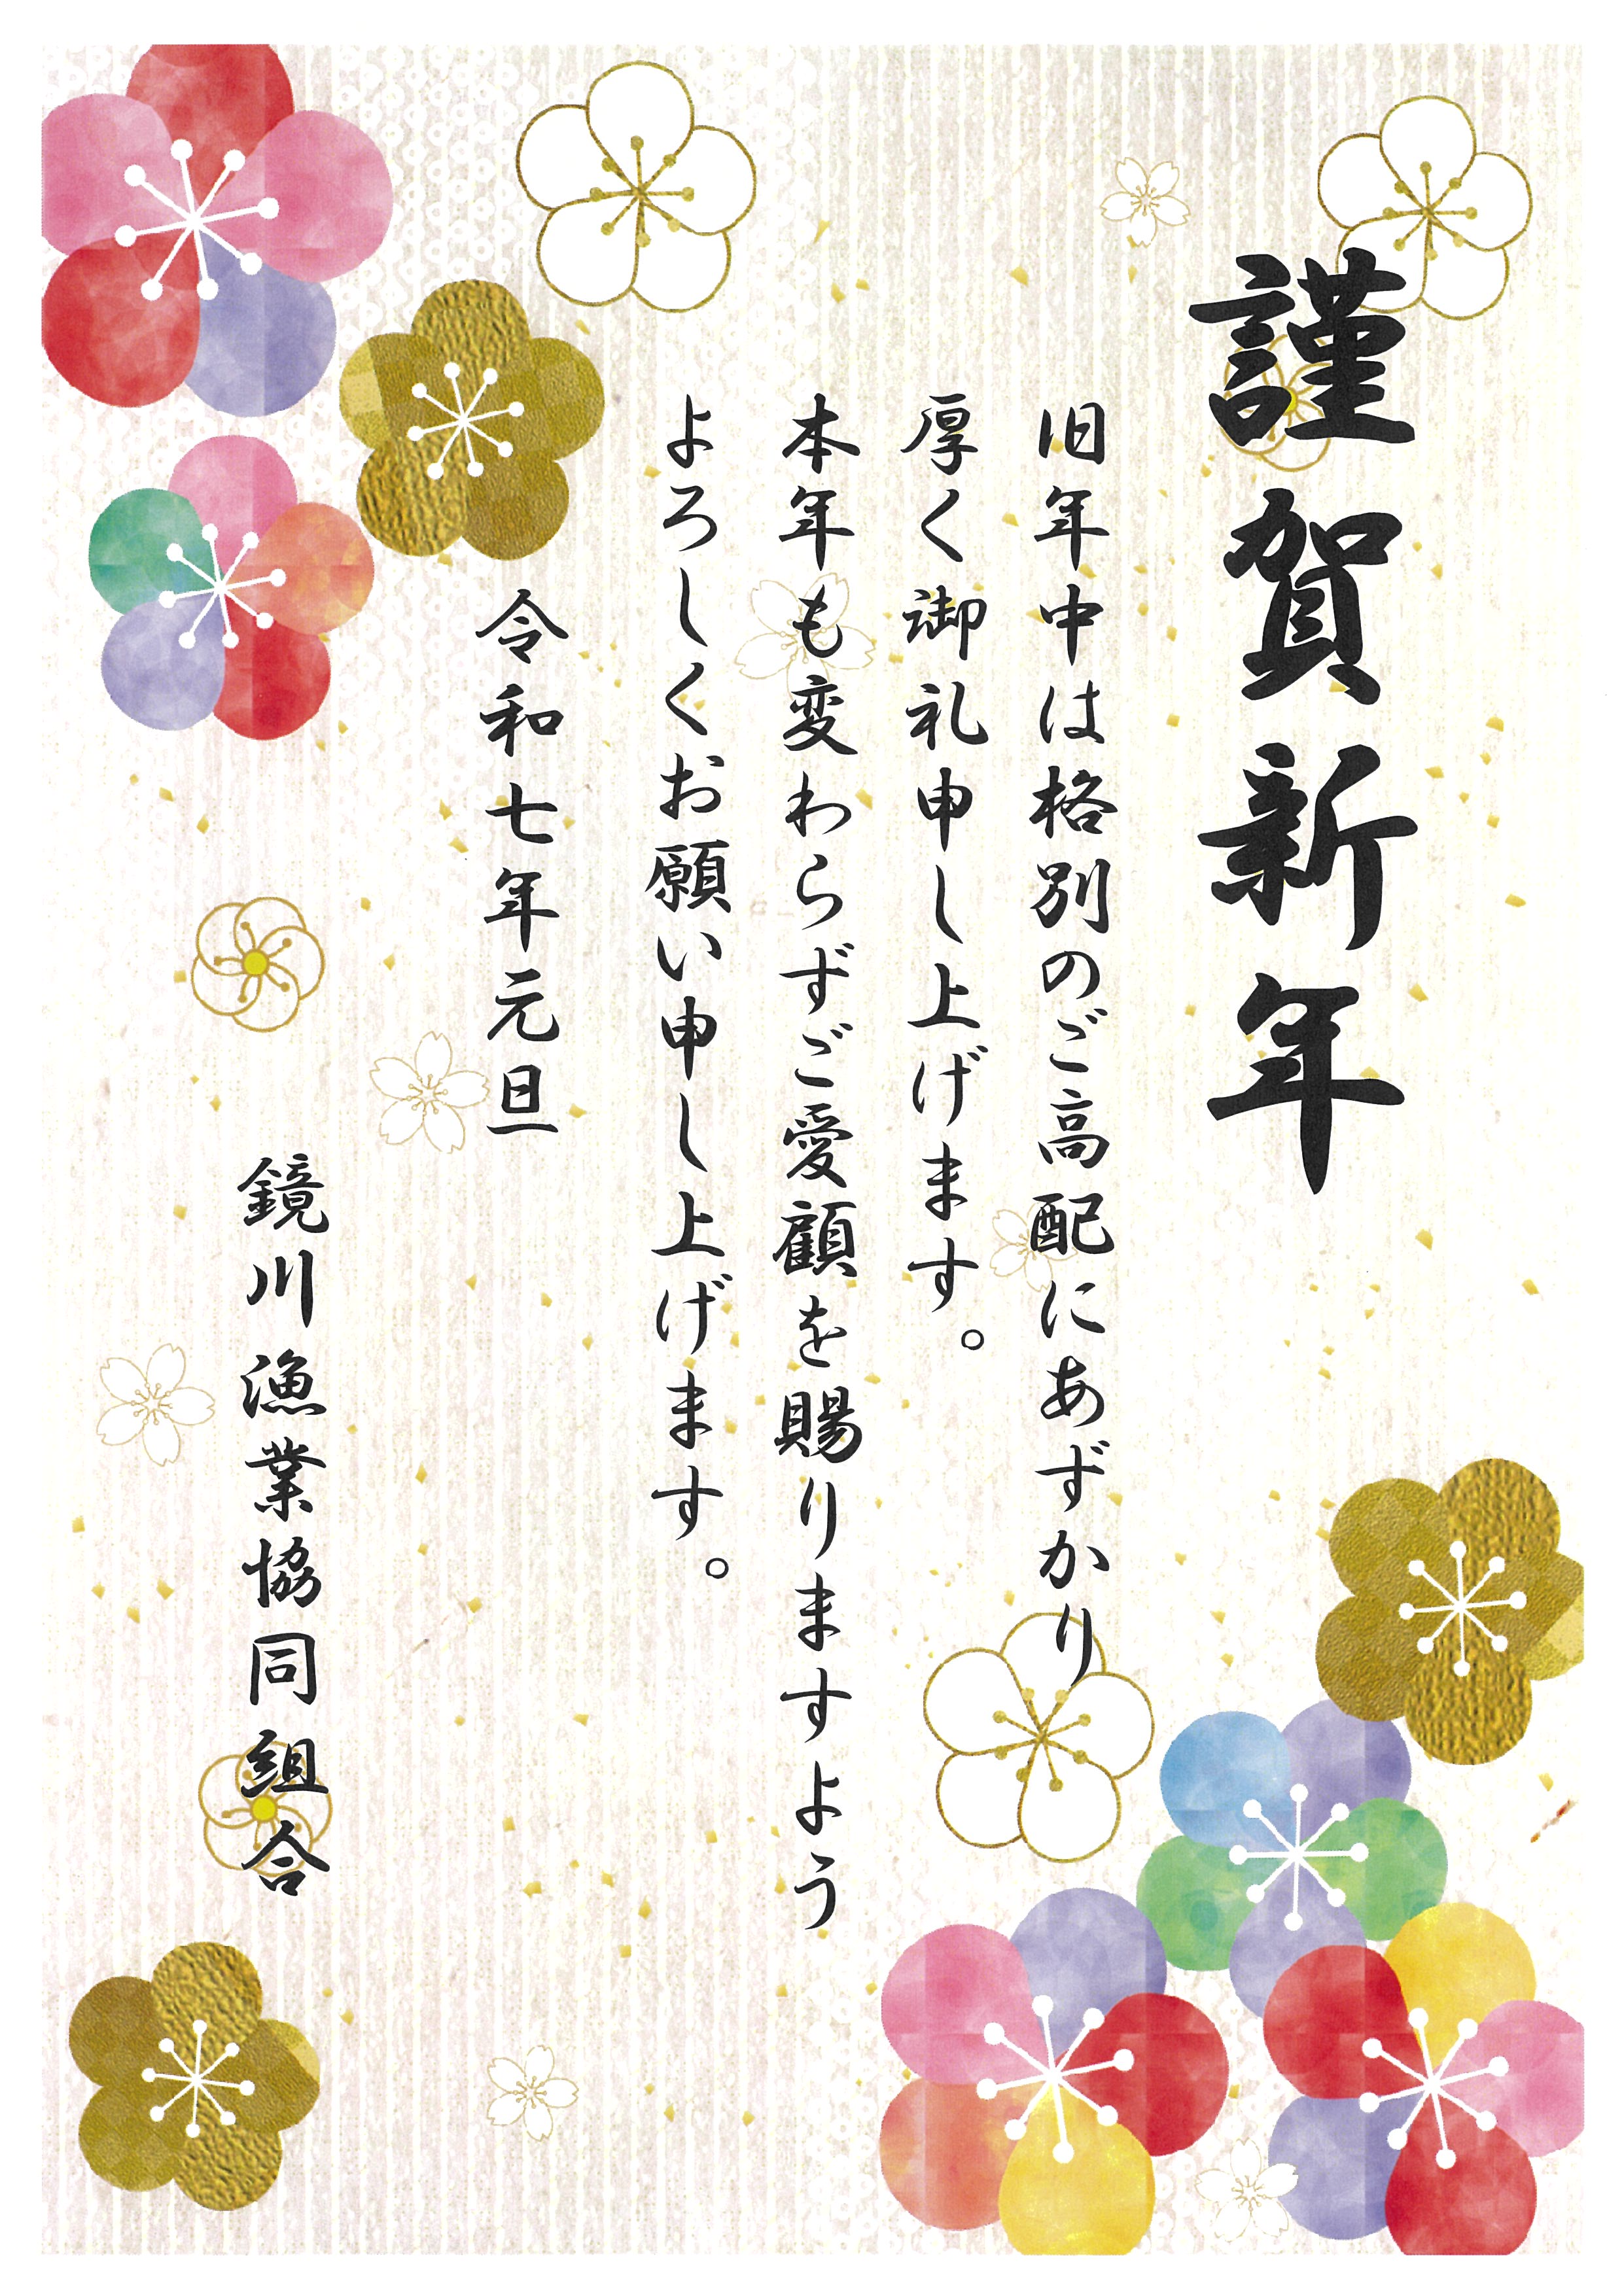 謹賀新年
旧年中は格別のご高配にあずかり
厚く御礼申し上げます。
本年も変わらずご愛顧を賜りますよう
よろしくお願い申し上げます。
令和七年元旦
鏡川漁業協同組合